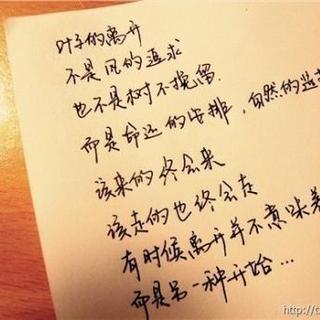 叶子的离开
不是风的追求
也不是树不挽留
而是命运的安排,自然的选
该来的终会来
该走的也终会走
有时候离开并不意味着
而是另一种开始...
http://t